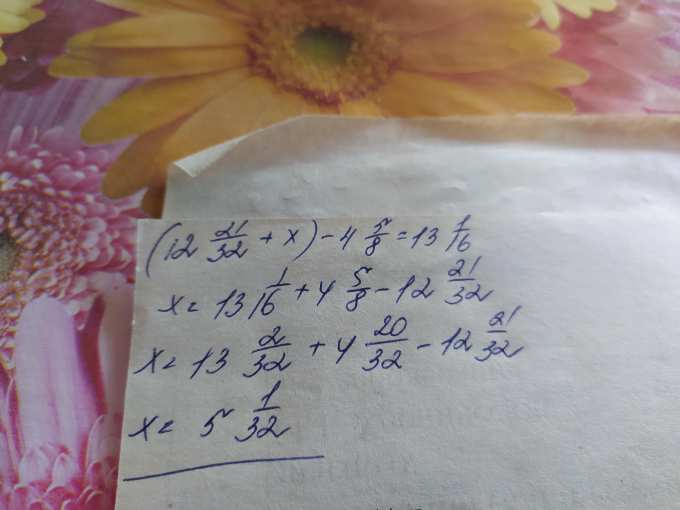 (12 21/32 + x) - 4 5/8 = 13 1/16
x = 13 1/16 + 4 5/8 - 12 21/32
x = 13 2/32 + 4 20/32 - 12 21/32
x = 5 1/32